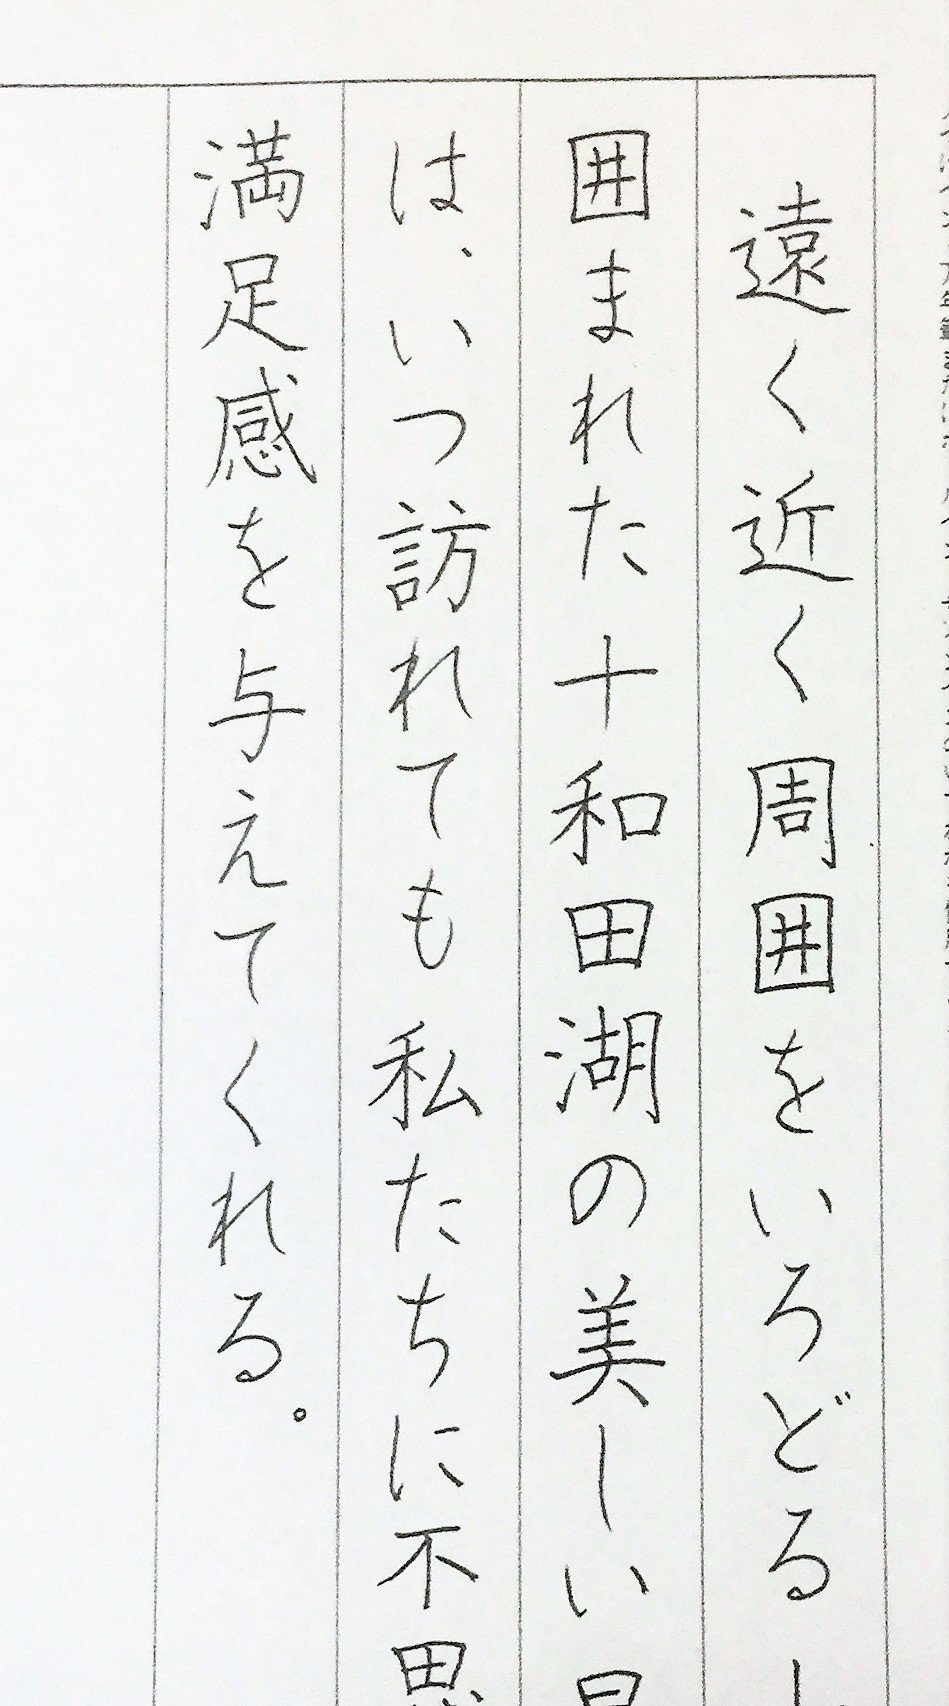 遠く近く周囲をいろどる
囲まれた十和田湖の美しい
は、いつ訪れても私たちに不思
満足感を与えてくれる。